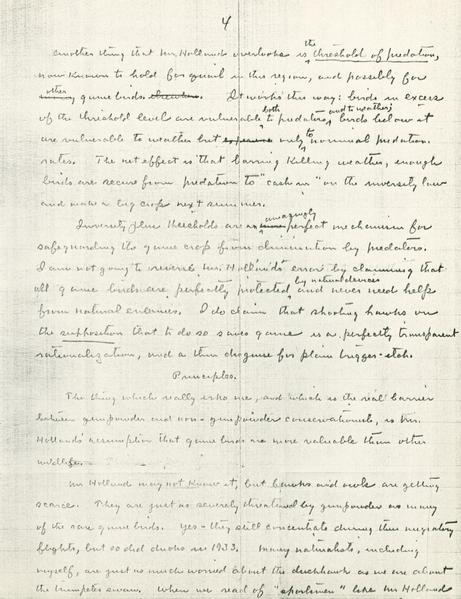 4
Another thing that Mr. Holland overlooks is the threshold of predation,
now known to hold for quail in this region, and possibly for
other game birds elsewhere. It works this way: birds in excess
of the threshold level are vulnerable both to predators and to weather; birds below it
are vulnerable to weather but only to nominal predation
rates. The net effect is that barring killing weather, enough
birds are secure from predation to "cash in" on the inversity law
and make a big crop next summer.
Inversity plus thresholds are an amazingly perfect mechanism for
safeguarding the game crop from diminution by predators.
I am not going to reverse Mr. Holland's error by claiming that
all game birds are perfectly protected by natural devices and never need help
from natural enemies. I do claim that shooting hawks on
the supposition that to do so saves game is a perfectly transparent
rationalization, and a thin disguise for plain trigger-itch.
Principles.
The thing which really irks me, and which is the real barrier
between gunpowder and non-gunpowder conservationists, is Mr.
Holland's assumption that game birds are more valuable than other
wildlife.
Mr Holland may not know it, but hawks and owls are getting
scarce. They are just as severely threatened by gunpowder as many
of the rare game birds. Yes - they still concentrate during their migratory
flights, but so did ducks in 1933. Many naturalists, including
myself, are just as much worried about the duckhawk as we are about
the trumpeter swan. When we read of "sportsmen" like Mr Holland